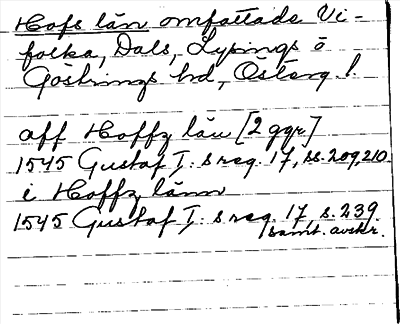 Hofs län omfattade Vi-
folka, Dals, Lysings o
Göstrings hd, Österg. l.
aff Hoffz län [2 ggr]
1545 Gustaf I:s reg. 17, ss. 209, 210
i Hoffz länn
1545 Gustaf I:s reg. 17, s. 239
samt. avskr.